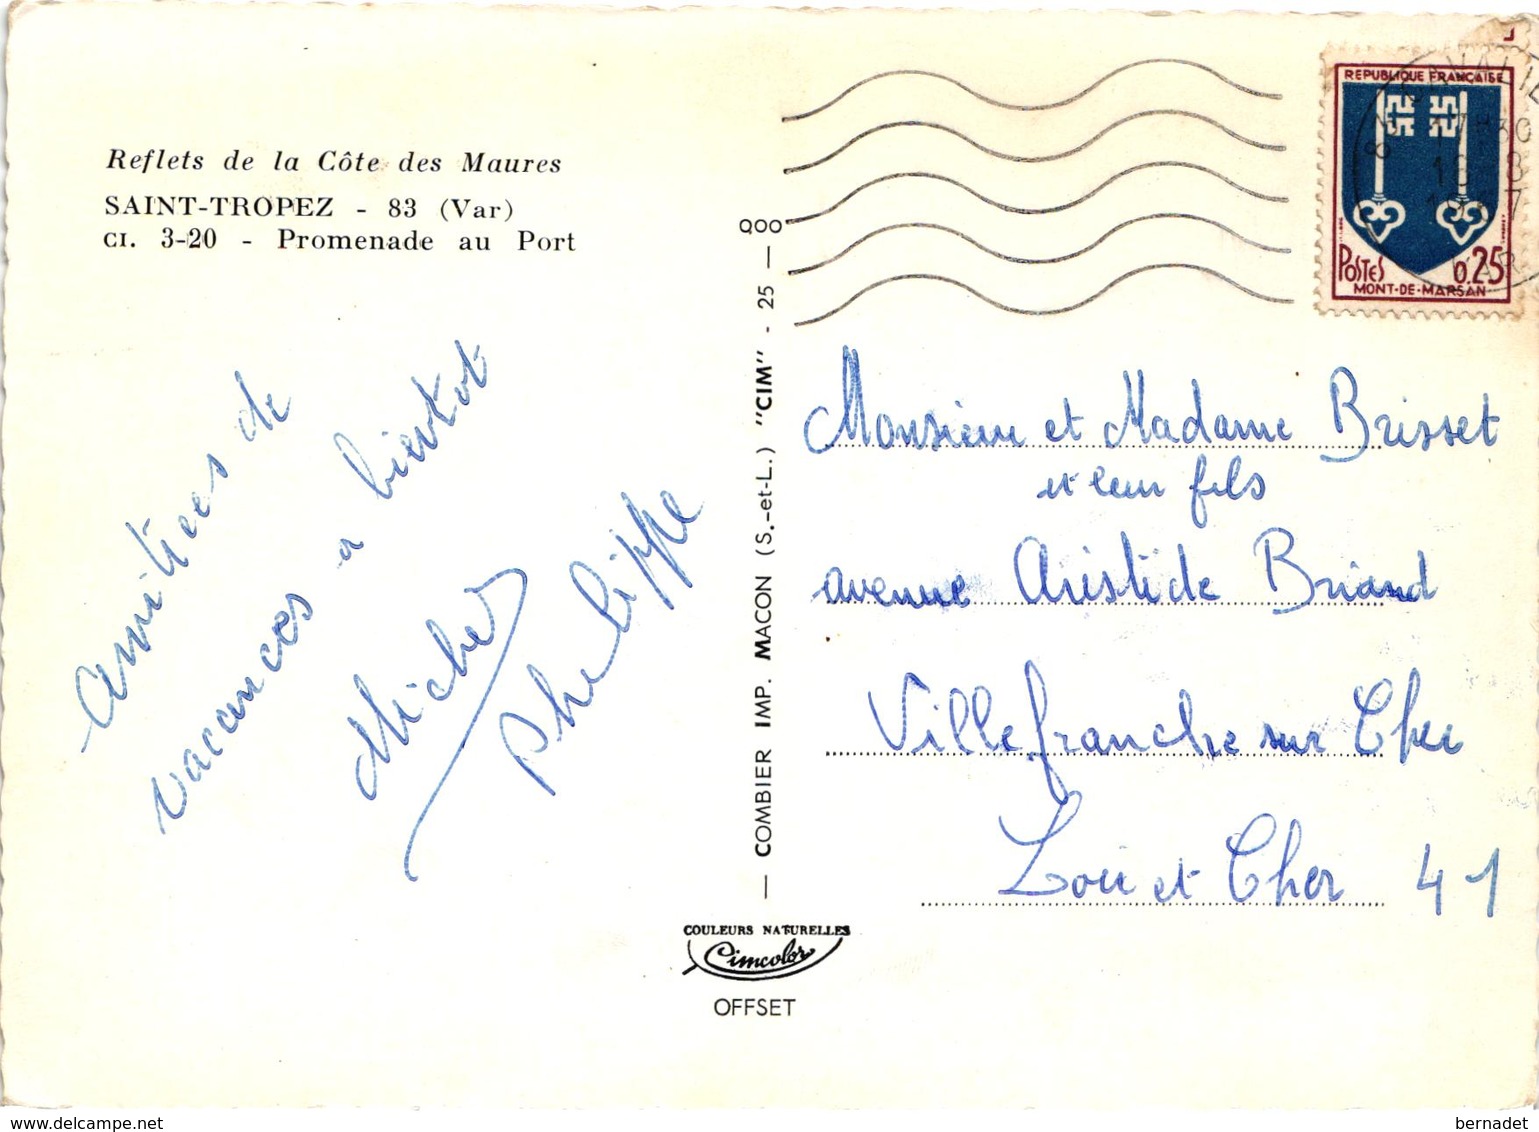 Reflets de la Côte des Maures
SAINT-TROPEZ - 83 (Var)
CI. 3-20 - Promenade au Port
amitiees de
vacances a bientot
Michel
Philippe
COMBIER IMP. MACON (S.-et-L.) "CIM" - 25 —
COULEURS NATURELLES
Cimcolor
OFFSET
REPUBLIQUE FRANÇAISE
POSTES 0.25
MONT-DE-MARSAN
17H30
Monsieur et Madame Brisset
et leur fils
avenue Aristide Briand
Villefranche sur Cher
Loir et Cher 41
bernadet